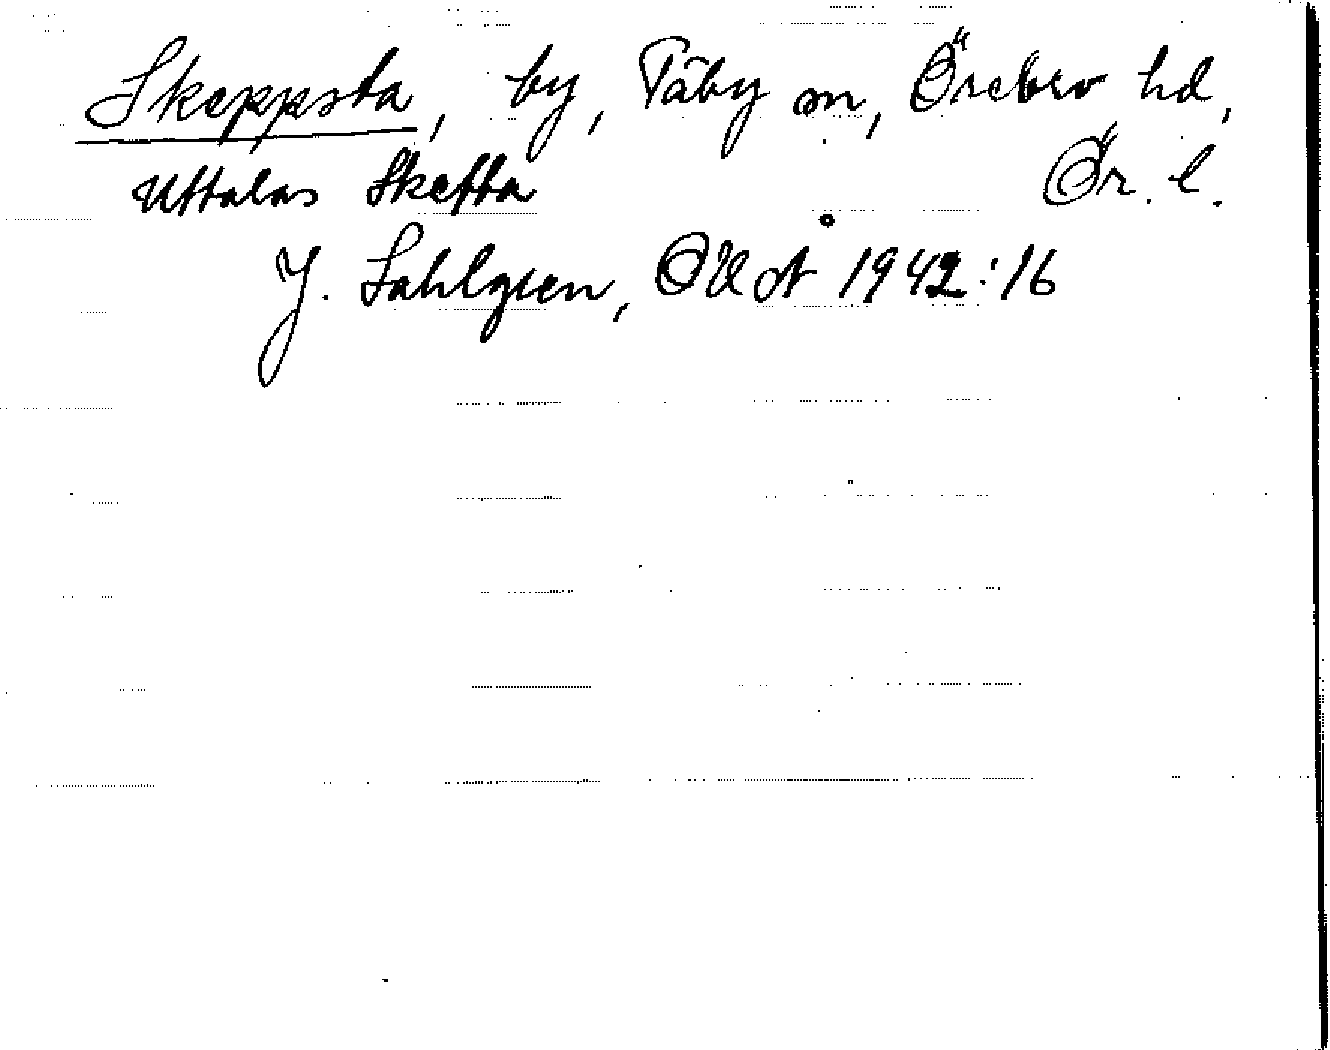 Skeppsta, by, Täby sn, Örebro hd,
Uttalas Skefta Ör. l.
J. Sahlgren, OUÅ 1942:16